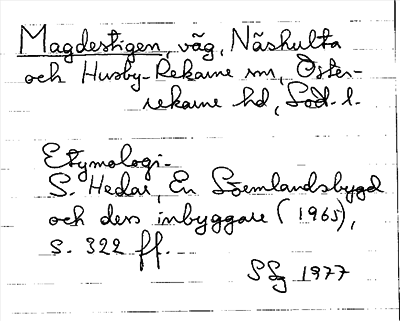 Magdestigen, väg, Näshulta
och Husby-Rekarne snr, Öster-
rekarne hd, Söd. l.
Etymologi.
S. Hedar, En Sörmlandsbygd
och dess inbyggare (1965),
s. 322 ff.
SSg 1977